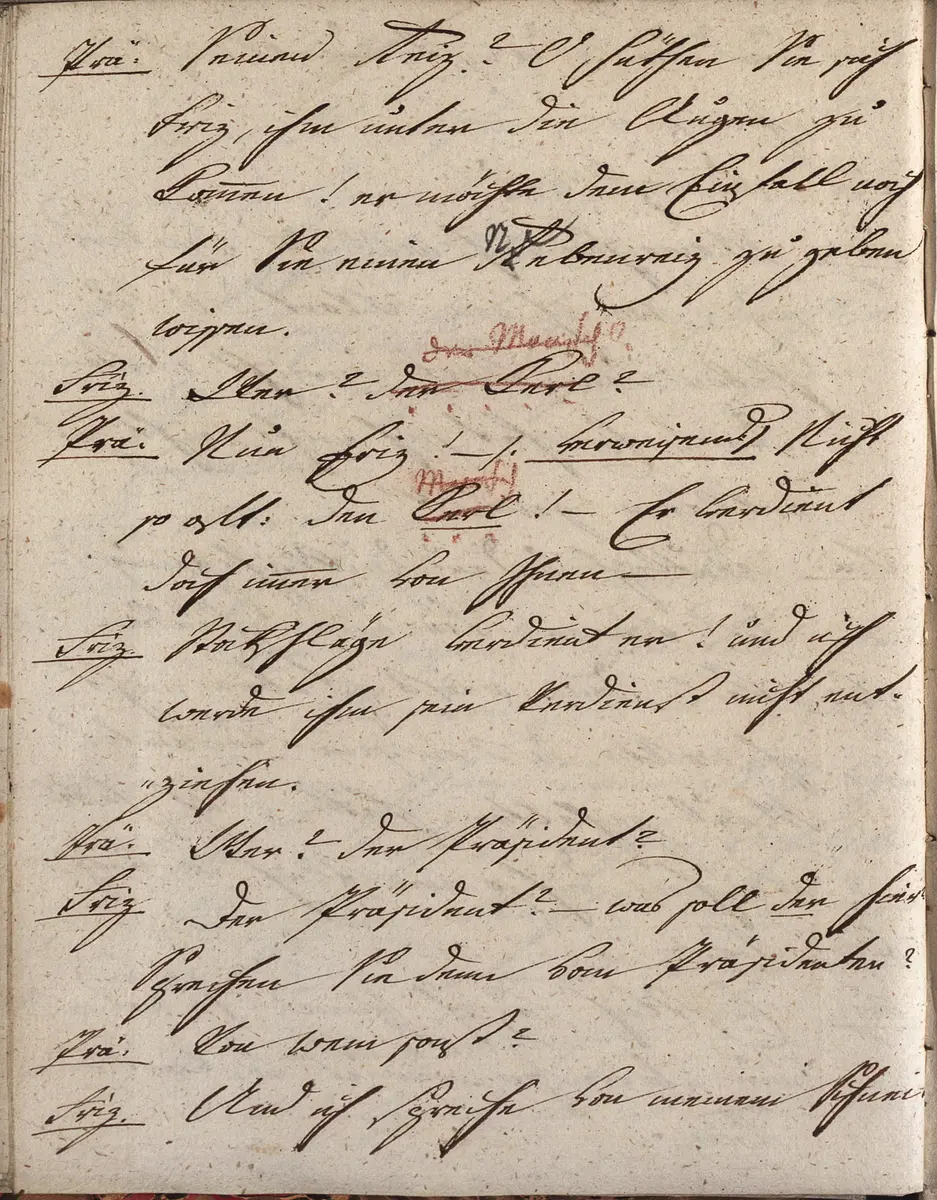 Prä: Seinen Reiz? O hüthen Sie sich
Friz, ihm unter die Augen zu
kom̄en! er möchte dem Einfall noch
für Sie einen Nebenreiz zu geben
wissen.
der Mensch?
Friz. Wer? der Kerl?
Prä. Nun Friz! – /: verweisend) Nicht
Mensch
so alt: den Kerl! – Er verdient
doch im̄er von Ihnen —
Friz Stokschläge verdient er! und ich
werde ihm sein Verdienst nicht ent-
"ziehen.
Prä. Wer? der Präsident?
Friz Der Präsident? – was soll der hier
Sprechen Sie denn vom Präsidenten?
Prä. Von wem sonst?
Friz. Und ich spreche von meinem Schnei